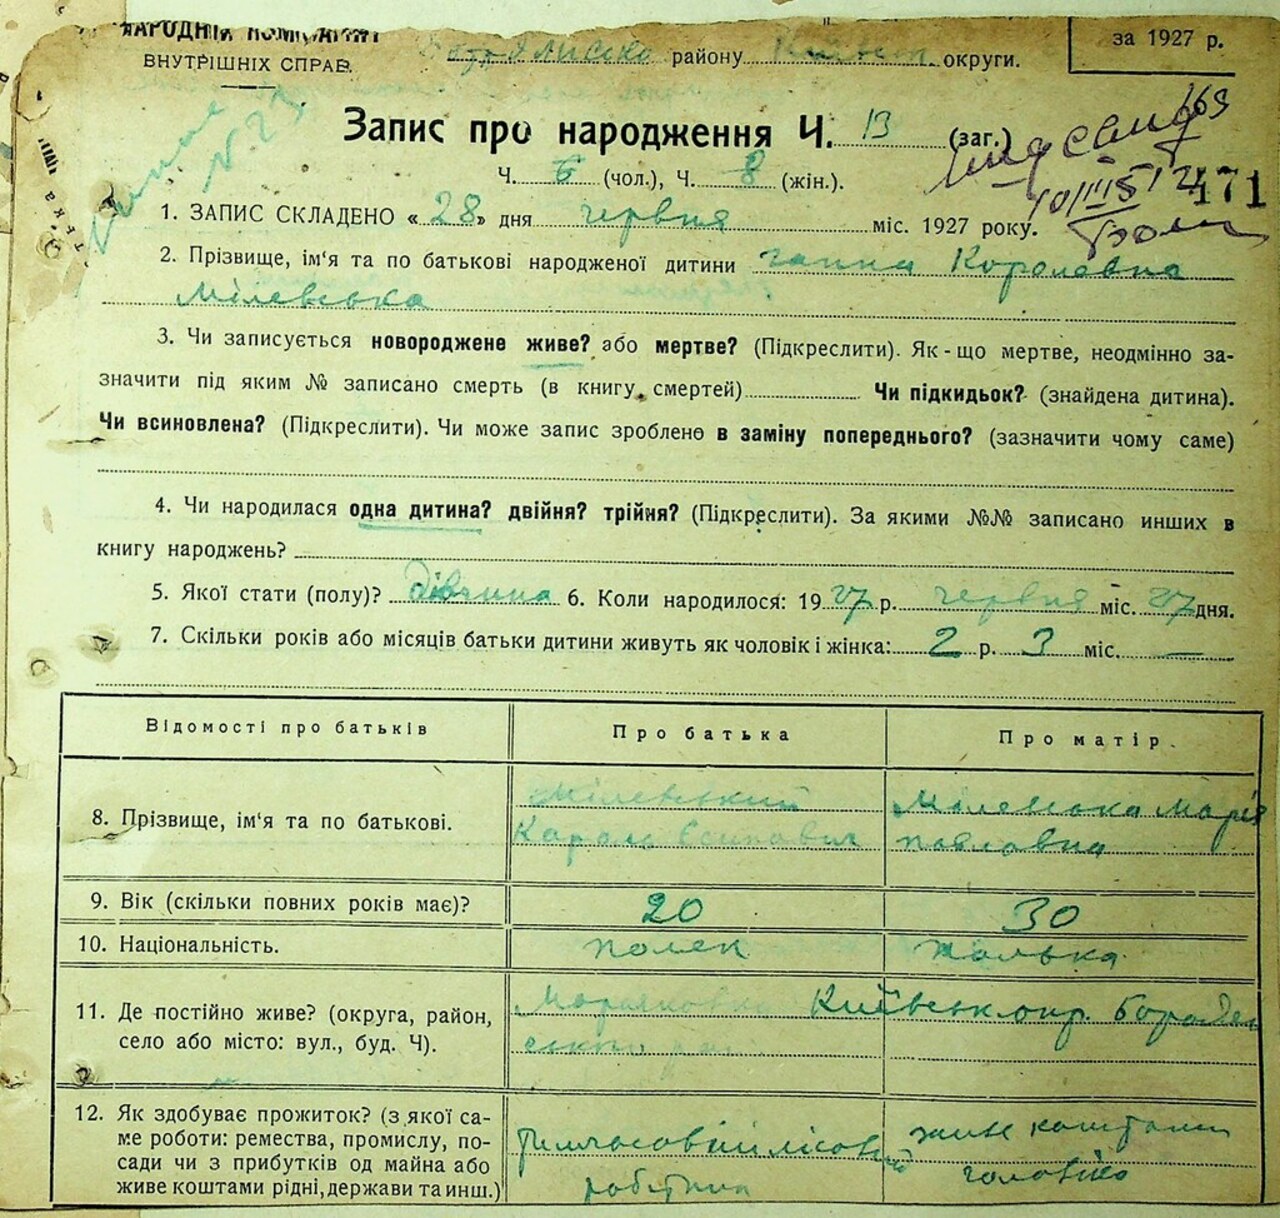 НАРОДНІЙ КОМІСАРІЯТ
ВНУТРІШНІХ СПРАВ.
району округи.
за 1927 р.
Запис про народження Ч. 13 (заг.)
169
Ч. 6 (чол.), Ч. 8 (жін.).
10/III 51
171
1. ЗАПИС СКЛАДЕНО « 28 » дня червня міс. 1927 року.
2. Прізвище, ім'я та по батькові народженої дитини ганна Королевна
Мілевська
3. Чи записується новороджене живе? або мертве? (Підкреслити). Як-що мертве, неодмінно за-
значити під яким № записано смерть (в книгу смертей) Чи підкидьок? (знайдена дитина).
Чи всиновлена? (Підкреслити). Чи може запис зроблено в заміну попереднього? (зазначити чому саме)
4. Чи народилася одна дитина? двійня? трійня? (Підкреслити). За якими №№ записано инших в
книгу народжень?
5. Якої стати (полу)? дівчина 6. Коли народилося: 1927 р. червня міс. 27 дня.
7. Скільки років або місяців батьки дитини живуть як чоловік і жінка: 2 р. 3 міс. —
Відомості про батьків Про батька Про матір.
8. Прізвище, ім'я та по батькові.
Мілевський
Кароль Єсипович
Мілевська Марія
павловна
9. Вік (скільки повних років має)? 20 30
10. Національність. полек полька
11. Де постійно живе? (округа, район,
село або місто: вул., буд. Ч).
Київськ окр.
12. Як здобуває прожиток? (з якої са-
ме роботи: ремества, промислу, по-
сади чи з прибутків од майна або
живе коштами рідні, держави та инш.)
Тимчасовий лісовий
робітник
живе коштами
чоловіка